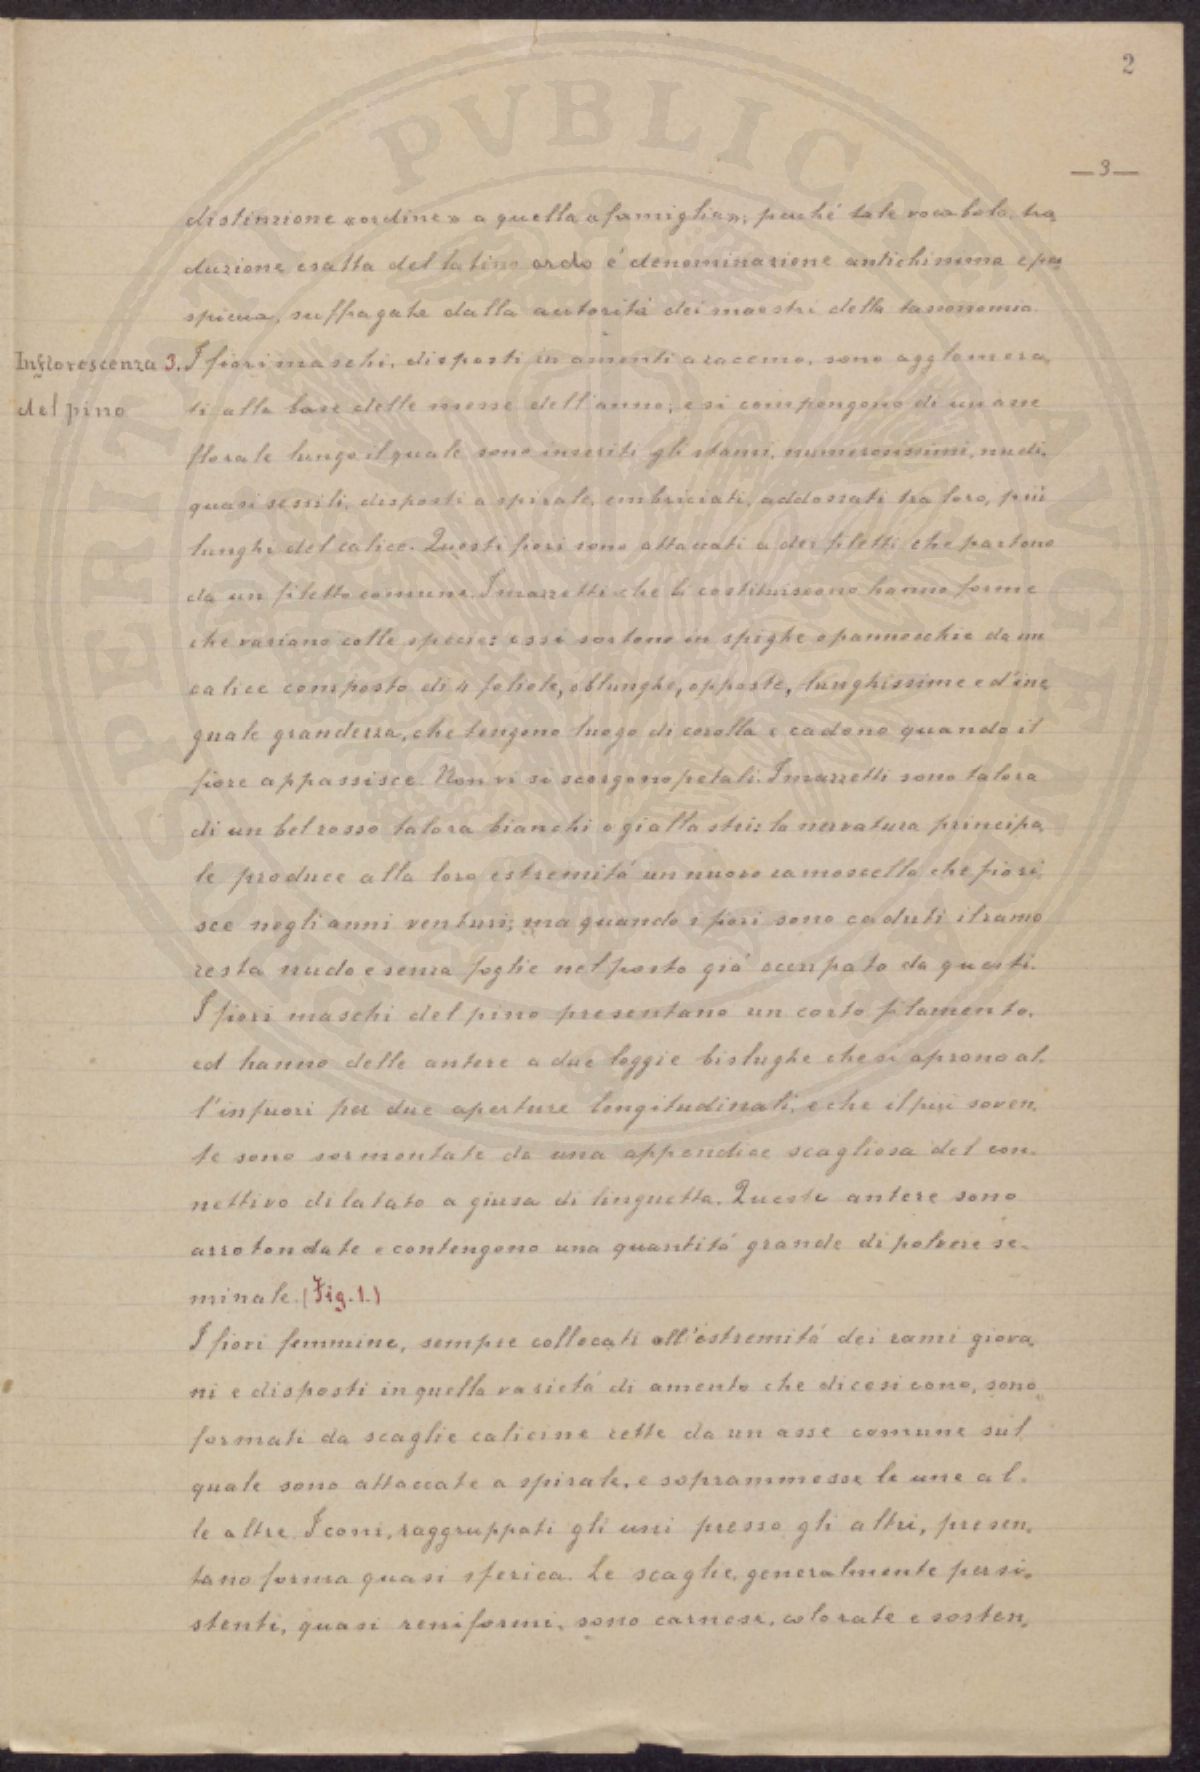 2
—3—
distinzione «ordine» a quella «famiglia»; perché tale vocabolo, tra,
duzione esatta del latino ordo é denominazione antichissima e per
spicua, suffragata dalla autoritá dei maestri della tassonomia.
Inflorescenza 3. I fiori maschi, disposti in amenti a racemo, sono agglomera,
del pino
ti alla base delle messe dell'anno; e si compongono di un asse
florale lungo il quale sono inseriti gli stami, numerosissimi, nudi,
quasi sessili, disposti a spirale, embriciati, addossati tra loro, piú
lunghi del calice. Questi fiori sono attaccati a dei filetti che partono
da un filetto comune. I mazzetti che li costituiscono hanno forme
che variano colle specie: essi sortono in spighe o pannocchie da un
calice composto di 4 foliole, oblunghe, opposte, lunghissime e d'ine,
guale grandezza, che tengono luogo di corolla e cadono quando il
fiore appassisce. Non vi si scorgono petali. I mazzetti sono talora
di un bel rosso talora bianchi o giallastri: la nervatura principa,
le produce alla loro estremitá un nuovo ramoscello che fiori,
sce negli anni venturi; ma quando i fiori sono caduti il ramo
resta nudo e senza foglie nel posto giá occupato da questi.
I fiori maschi del pino presentano un corto filamento,
ed hanno delle antere a due loggie bislughe che si aprono al,
l'infuori per due aperture longitudinali, e che il piú soven,
te sono sormontate da una appendice scagliosa del con,
nettivo dilatato a giusa di linguetta. Queste antere sono
arrotondate e contengono una quantitá grande di polvere se-
minale. (Fig. 1.)
I fiori femmine, sempre collocati all'estremitá dei rami giova,
ni e disposti in quella varietá di amento che dicesi cono, sono
formati da scaglie calicine rette da un asse comune sul
quale sono attaccate a spirale, e soprammesse le une al,
le altre. I coni, raggruppati gli uni presso gli altri, presen,
tano forma quasi sferica. Le scaglie, generalmente persi,
stenti, quasi reniformi, sono carnose, colorate e sosten,